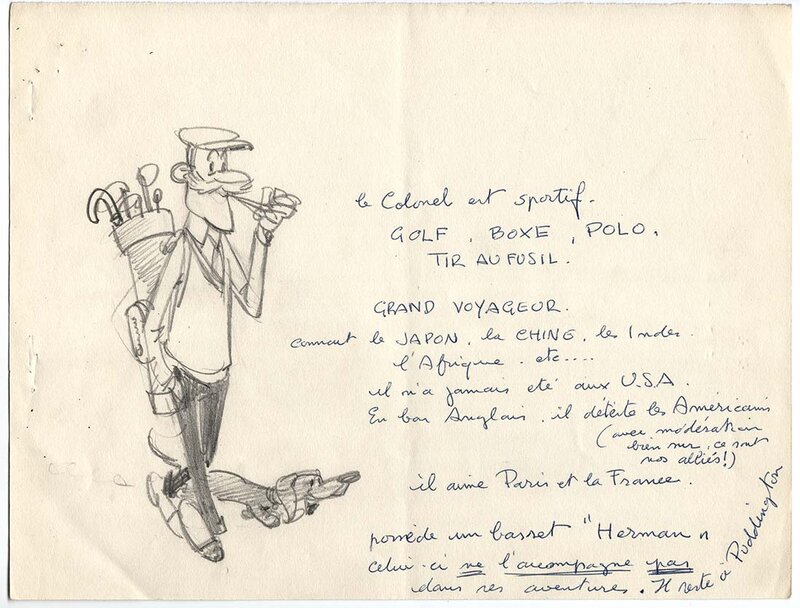 le Colonel est sportif.
GOLF, BOXE, POLO.
TIR AU FUSIL.
GRAND VOYAGEUR.
connait le JAPON, la CHINE, les Indes.
l'Afrique. etc....
il n'a jamais eté aux U.S.A.
En bon Anglais, il déteste les Américains
(avec modération
bien sur, ce sont
nos alliés!)
il aime Paris et la France.
possède un basset "Herman"
celui-ci ne l'accompagne pas
dans ses aventures. Il reste à Puddington